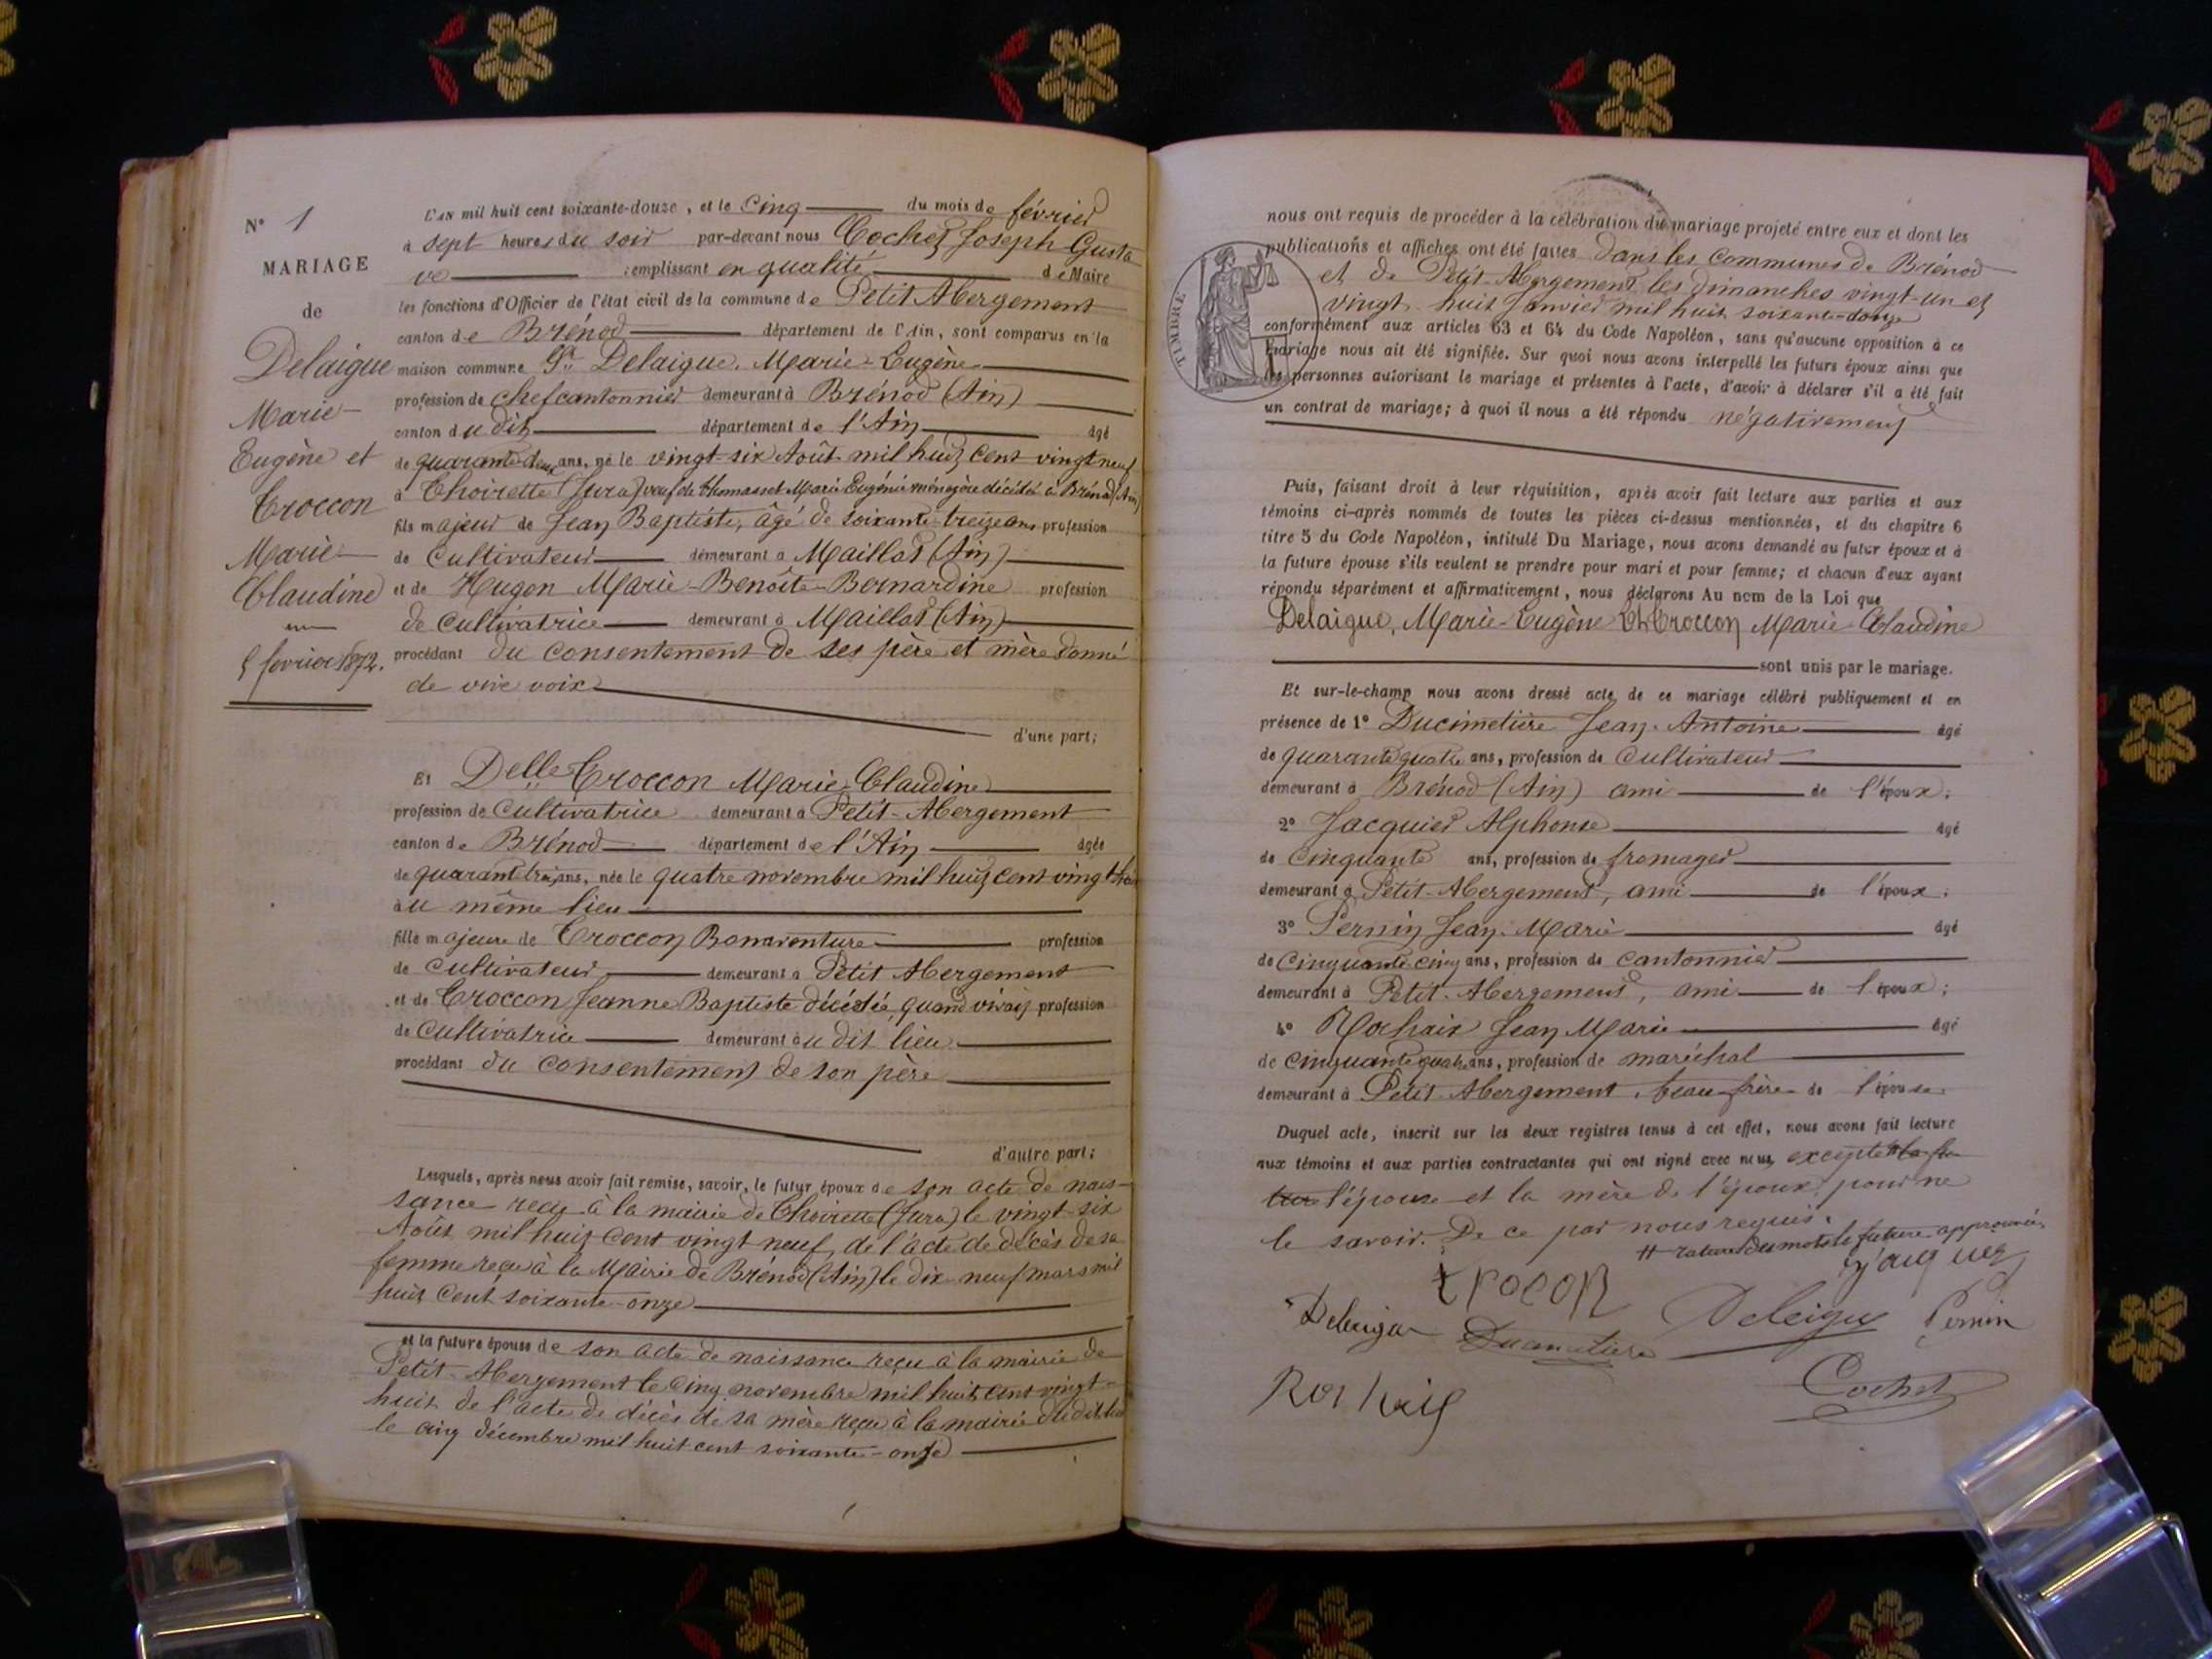 N° 1
MARIAGE
de
Delaigue
Marie-
Eugène et
Croccon
Marie
Claudine
5 février 1872.
L'AN mil huit cent soixante-douze, et le Cinq du mois de février
à sept heures du soir par-devant nous Cochet Joseph Gusta
ve remplissant en qualité de Maire
les fonctions d'Officier de l'état civil de la commune de Petit Abergement
canton de Brénod département de l'Ain, sont comparus en la
maison commune Sr Delaigue, Marie-Eugène
profession de chef cantonnier demeurant à Brénod (Ain)
canton du dit département de l'Ain âgé
de quarante-deux ans, né le vingt-six Août mil huit cent vingt neuf
à Thoirette (Jura) veuf de Thomasset Marie Eugénie ménagère décédée à Brénod (Ain)
fils majeur de Jean Baptiste, âgé de soixante-treize ans profession
de Cultivateur demeurant à Maillat (Ain)
et de Hugon Marie-Benoîte-Bernardine profession
de Cultivatrice demeurant à Maillat (Ain)
procédant du consentement de ses père et mère donné
de vive voix
d'une part;
Et Delle Croccon Marie-Claudine
profession de Cultivatrice demeurant à Petit-Abergement
canton de Brénod département de l'Ain âgée
de quarante trois ans, née le quatre novembre mil huit cent vingt huit
au même lieu
fille majeure de Croccon Bonaventure profession
de Cultivateur demeurant à Petit Abergement
et de Croccon Jeanne Baptiste décédée, quand vivait profession
de Cultivatrice demeurant au dit lieu
procédant du consentement de son père
d'autre part;
Lesquels, après nous avoir fait remise, savoir, le futur époux de son acte de nais-
sance reçu à la mairie de Thoirette (Jura) le vingt-six
Août mil huit cent vingt neuf, de l'acte de décès de sa
femme reçu à la Mairie de Brénod (Ain) le dix-neuf mars mil
huit cent soixante-onze
et la future épouse de son acte de naissance reçu à la mairie de
Petit-Abergement le cinq novembre mil huit cent vingt-
huit de l'acte de décès de sa mère reçu à la mairie dudit lieu
le cinq décembre mil huit cent soixante-onze
nous ont requis de procéder à la célébration du mariage projeté entre eux et dont les
publications et affiches ont été faites dans les communes de Brénod
et de Petit-Abergement les dimanches vingt-un et
vingt-huit Janvier mil huit soixante-douze
TIMBRE
conformément aux articles 63 et 64 du Code Napoléon, sans qu'aucune opposition à ce
mariage nous ait été signifiée. Sur quoi nous avons interpellé les futurs époux ainsi que
les personnes autorisant le mariage et présentes à l'acte, d'avoir à déclarer s'il a été fait
un contrat de mariage; à quoi il nous a été répondu négativement
Puis, faisant droit à leur réquisition, après avoir fait lecture aux parties et aux
témoins ci-après nommés de toutes les pièces ci-dessus mentionnées, et du chapitre 6
titre 5 du Code Napoléon, intitulé Du Mariage, nous avons demandé au futur époux et à
la future épouse s'ils veulent se prendre pour mari et pour femme; et chacun d'eux ayant
répondu séparément et affirmativement, nous déclarons Au nom de la Loi que
Delaigue, Marie-Eugène Et Croccon Marie-Claudine
sont unis par le mariage.
Et sur-le-champ nous avons dressé acte de ce mariage célébré publiquement et en
présence de 1° Ducimetière Jean-Antoine âgé
de quarante quatre ans, profession de Cultivateur
demeurant à Brénod (Ain) ami de l'époux;
2° Jacquier Alphonse âgé
de Cinquante ans, profession de fromager
demeurant à Petit-Abergement, ami de l'époux;
3° Pernin Jean-Marie âgé
de Cinquante-cinq ans, profession de cantonnier
demeurant à Petit-Abergement, ami de l'époux;
4° Rochaix Jean Marie âgé
de cinquante quatre ans, profession de maréchal
demeurant à Petit-Abergement, beau-frère de l'épouse
Duquel acte, inscrit sur les deux registres tenus à cet effet, nous avons fait lecture
aux témoins et aux parties contractantes qui ont signé avec nous, excepté # la fu
ture l'épouse et la mère de l'époux, pour ne
le savoir. De ce par nous requis.
# rature du mot la future approuvée
Jaiquier
trocon
Delaigue Ducimetière Delaigue Pernin
Rochaix
Cochet